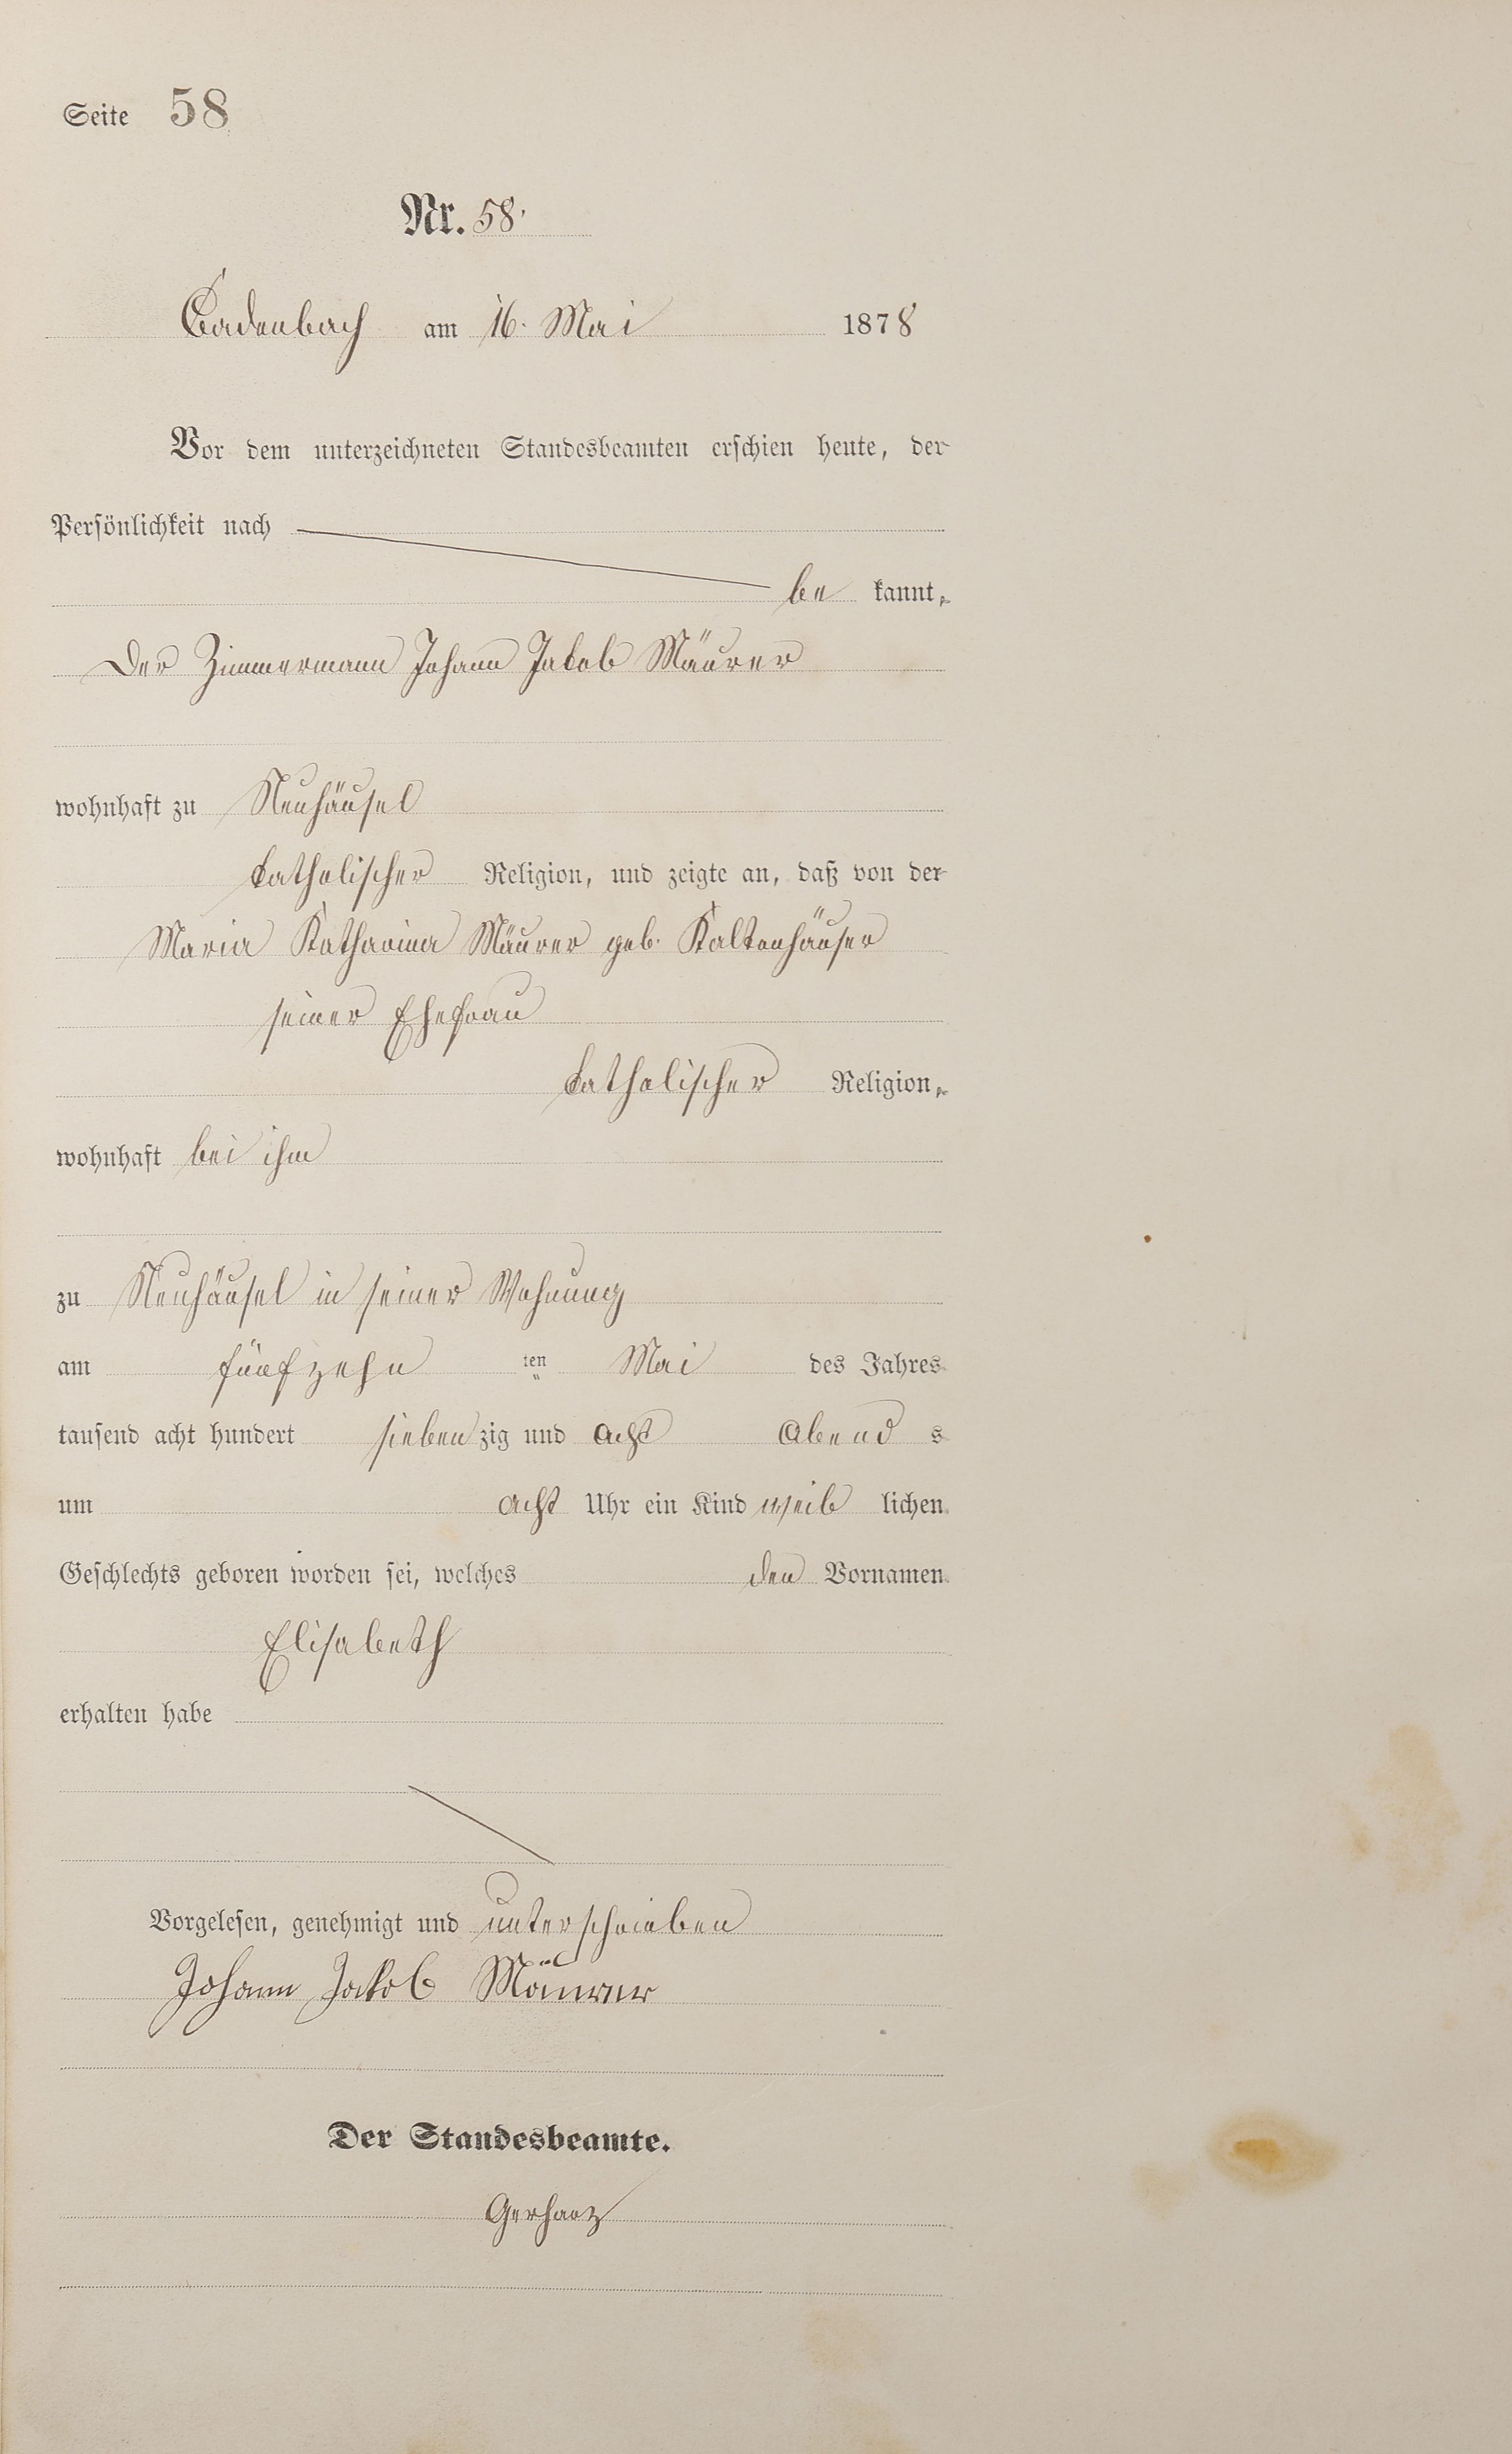 Seite 58
Nr. 58.
Cadenbach am 16. Mai 1878
Vor dem unterzeichneten Standesbeamten erschien heute, der
Persönlichkeit nach
be kannt,
Der Zimmermann Johann Jakob Mäurer
wohnhaft zu Neuhäusel
katholischer Religion, und zeigte an, daß von der
Maria Katharina Mäurer geb. Kaltenhäuser
seiner Ehefrau
katholischer Religion,
wohnhaft bei ihm
zu Neuhäusel in seiner Wohnung
am fünfzehn ten Mai des Jahres
tausend acht hundert siebenzig und acht Abend s
um acht Uhr ein Kind weib lichen
Geschlechts geboren worden sei, welches den Vornamen
Elisabeth
erhalten habe
Vorgelesen, genehmigt und unterschrieben
Johann Jakob Mäurer
Der Standesbeamte.
Gerharz